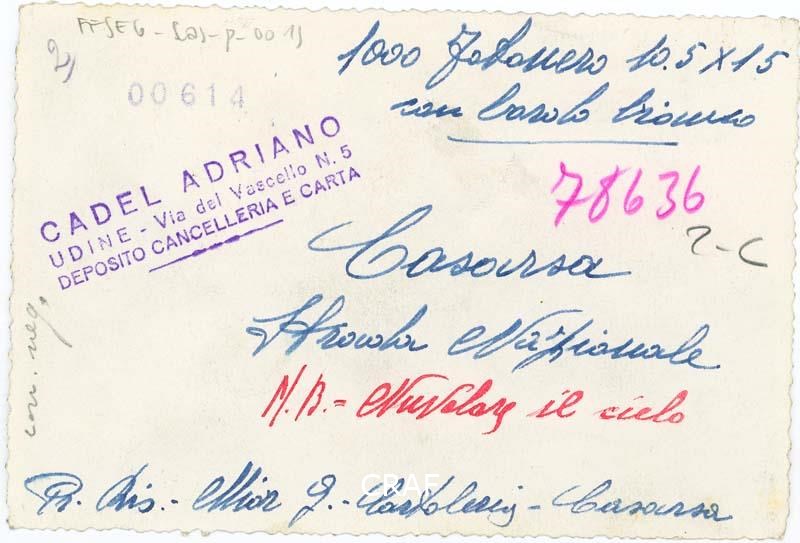 FFSEG - Cas - p - 0015
2)
1000 Fotonero 10.5 x 15
con bordo bianco
00614
CADEL ADRIANO
UDINE - Via del Vascello N. 5
DEPOSITO CANCELLERIA E CARTA
78636
2-C
Casarsa
Strada Nazionale
N.B. = Nuvolare il cielo
con. neg.
Pr. Dis. - Mior G. - Cartoleria - Casarsa
CRAF